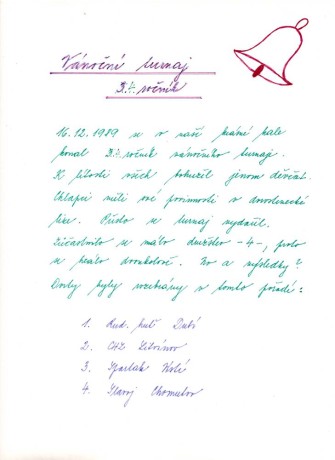 Vánoční turnaj
3. ročník
16. 12. 1989 se v naší krásné hale
konal 3. ročník vánočního turnaje.
K lítosti všech bohužel jenom děvčat.
Chlapci měli své povinnosti v dorostenecké
lize. Přesto se turnaj vydařil.
Zúčastnilo se málo družstev - 4 -, proto
se hrálo dvoukolově. No a výsledky?
Dorty byly rozebrány v tomto pořadí:
1. Rud. huť Dubí
2. CHZ Litvínov
3. Spartak
4. Slavoj Chomutov